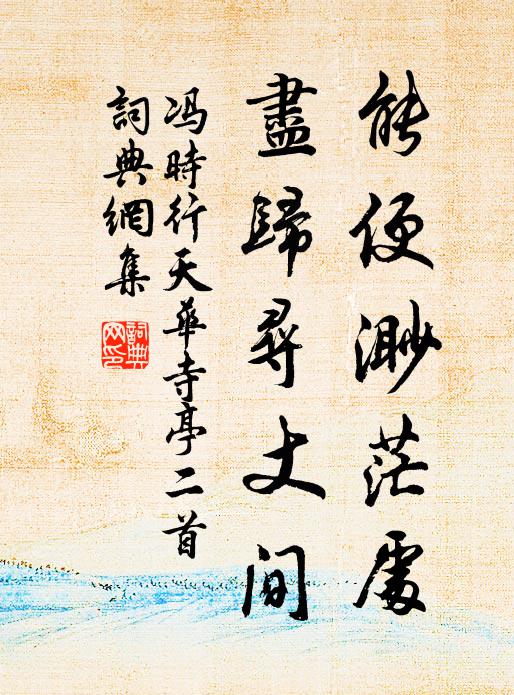 能便渺茫處
盡歸尋丈間
冯時行天華寺亭二首
詞典網集
詞典
網印